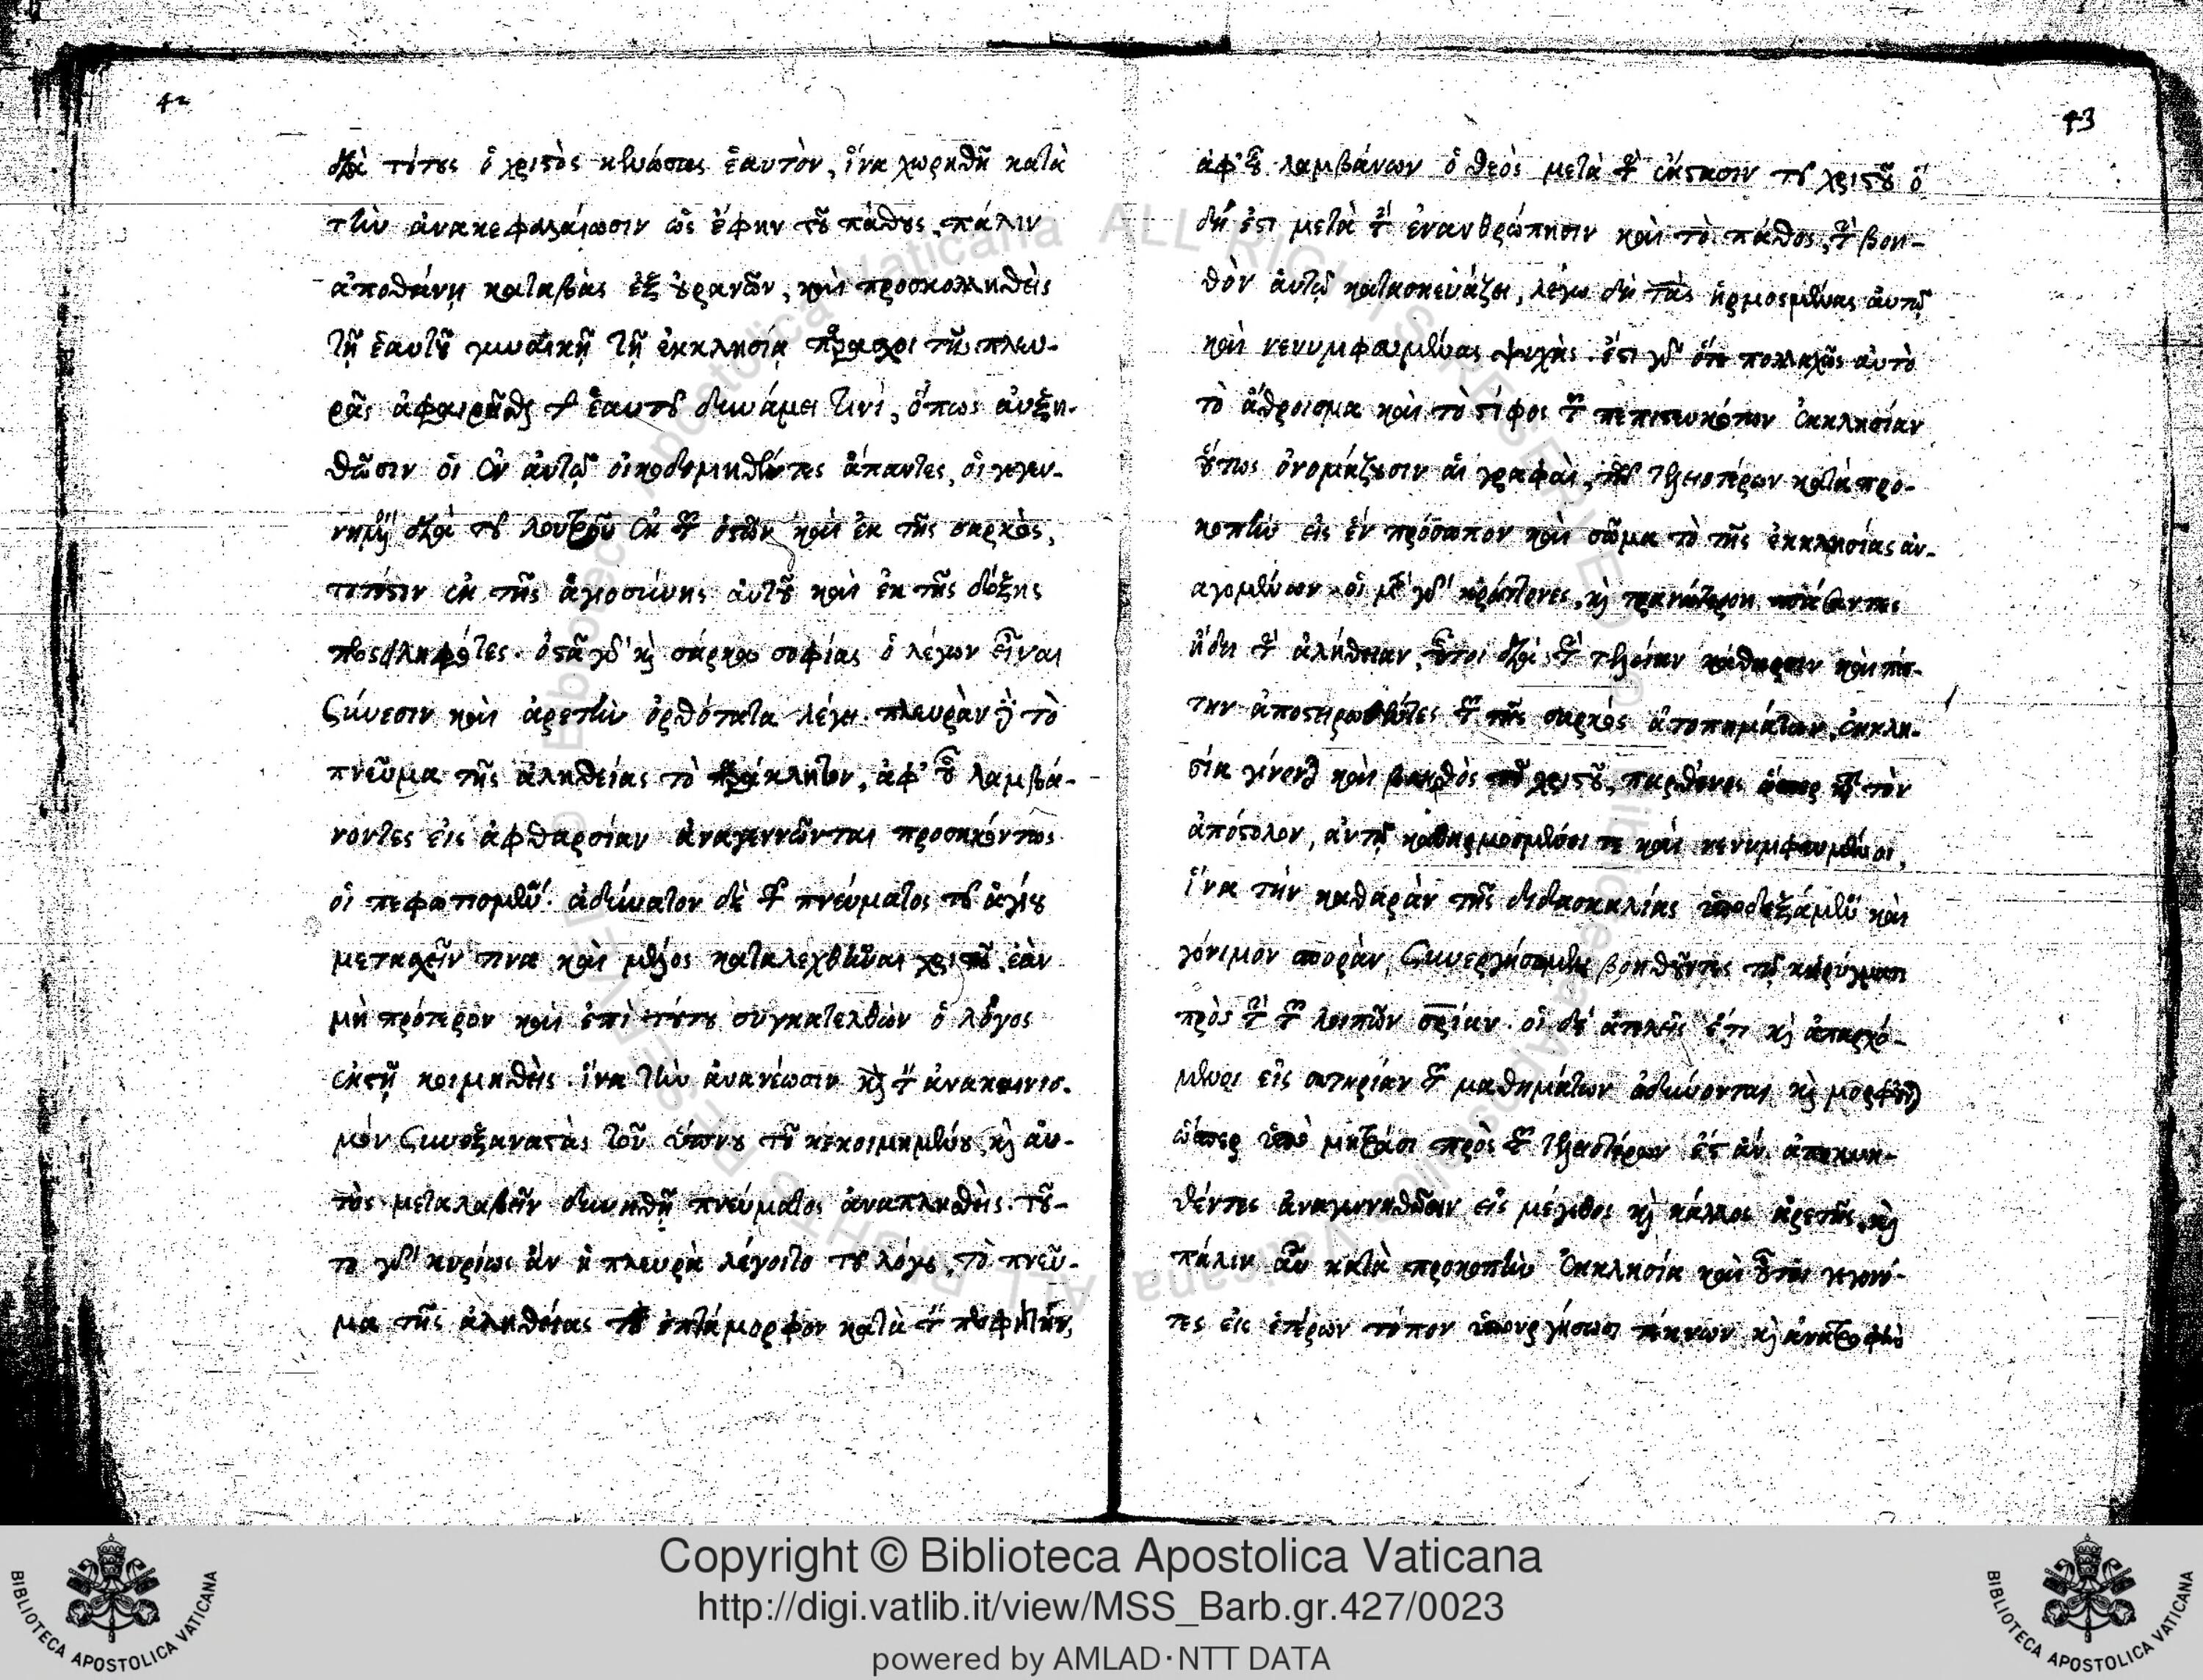 42
διὰ τούτους ὁ χριστὸς κενώσας ἑαυτὸν, ἵνα χωρηθῇ κατὰ
τὴν ἀνακεφαλαίωσιν ὡς ἔφην τοῦ πάθους, πάλιν
ἀποθάνῃ καταβὰς ἐξ οὐρανῶν, καὶ προσκολληθεὶς
τῇ ἑαυτοῦ γυναικὶ τῇ ἐκκλησίᾳ παράσχοι τῆς πλευ-
ρᾶς ἀφαιρεῖσθαι τῆς ἑαυτοῦ δύναμιν τινὶ, ὅπως αὐξη-
θῶσιν οἱ ἐν αὐτῷ οἰκοδομηθέντες ἅπαντες, οἱ γεγεν-
νημένοι διὰ τοῦ λουτροῦ ἐκ τῶν ὀστῶν καὶ ἐκ τῆς σαρκὸς,
τουτέστιν ἐκ τῆς ἁγιοσύνης αὐτοῦ καὶ ἐκ τῆς δόξης
προσειληφότες. ὀστᾶ γὰρ καὶ σάρκα σοφίας ὁ λέγων εἶναι
σύνεσιν καὶ ἀρετὴν ὀρθότατα λέγει. πλευρὰν δὲ τὸ
πνεῦμα τῆς ἀληθείας τὸ παράκλητον, ἀφ' οὗ λαμβά-
νοντες εἰς ἀφθαρσίαν ἀναγεννῶνται προσηκόντως
οἱ πεφωτισμένοι. ἀδύνατον δὲ τοῦ πνεύματος τοῦ ἁγίου
μετασχεῖν τινα καὶ μέλος καταλεχθῆναι χριστοῦ, ἐὰν
μὴ πρότερον καὶ ἐπὶ τοῦτον συγκατελθὼν ὁ λόγος
ἐκστῇ κοιμηθεὶς. ἵνα τὴν ἀνανέωσιν καὶ τὸν ἀνακαινισ-
μὸν συνεξαναστὰς τοῦ ὕπνου τοῦ κεκοιμημένου, καὶ αὐ-
τὸς μεταλαβεῖν δυνηθῇ πνεύματος ἀναπλησθεὶς. τοῦ-
το γὰρ κυρίως ἂν ἡ πλευρὰ λέγοιτο τοῦ λόγου, τὸ πνεῦ-
μα τῆς ἀληθείας τὸ ἑπτάμορφον κατὰ τὸν προφήτην,
43
ἀφ' οὗ λαμβάνων ὁ θεὸς μετὰ τὴν ἔκστασιν τοῦ χριστοῦ ὃ
δή ἐστι μετὰ τὴν ἐνανθρώπησιν καὶ τὸ πάθος, τὴν βοη-
θὸν αὐτῷ κατασκευάζει, λέγω δὴ τὰς ἡρμοσμένας αὐτῷ
καὶ νενυμφευμένας ψυχὰς. ἔστι γὰρ ὅτε πολλαχῶς αὐτὸ
τὸ ἄθροισμα καὶ τὸ στίφος τῶν πεπιστευκότων ἐκκλησίαν
οὕτως ὀνομάζουσιν αἱ γραφαὶ, τῶν τελειοτέρων κατὰ προ-
κοπὴν εἰς ἓν πρόσωπον καὶ σῶμα τὸ τῆς ἐκκλησίας ἀν-
αγομένων. οἱ μὲν γὰρ κρείττονες, καὶ τρανότερον
ἤδη τὴν ἀλήθειαν, οὗτοι διὰ τὴν τελείαν κάθαρσιν καὶ πίσ-
την ἀποστερωθέντες τῶν τῆς σαρκὸς ἀτοπημάτων, ἐκκλη-
σία γίνονται καὶ βοηθὸς τοῦ χριστοῦ, παρθένοι ὥσπερ κατὰ τὸν
ἀπόστολον, αὐτῷ καθηρμοσμέναι τε καὶ νενυμφευμέναι,
ἵνα τὴν καθαρὰν τῆς διδασκαλίας ὑποδεξάμενοι καὶ
γόνιμον σπορὰν, συνεργήσωμεν βοηθοῦντες τῷ κηρύγματι
πρὸς τὴν τῶν λοιπῶν σωτηρίαν. οἱ δὲ ἀτελεῖς ἔτι καὶ ἀπαρχό-
μενοι εἰς σωτηρίαν τῶν μαθημάτων ὠδίνονται καὶ μορφοῦνται
ὥσπερ ὑπὸ μητράσι πρὸς τῶν τελειοτέρων ἔστ' ἂν ἀποκυη-
θέντες ἀναγεννηθῶσιν εἰς μέγεθος καὶ κάλλος ἀρετῆς, καὶ
πάλιν αὖ κατὰ προκοπὴν ἐκκλησία καὶ οὗτοι γεγονό-
τες εἰς ἑτέρων τόκον ὑπουργήσωσι τέκνων καὶ ἀνατροφὴν
Copyright © Biblioteca Apostolica Vaticana
http://digi.vatlib.it/view/MSS_Barb.gr.427/0023
powered by AMLAD·NTT DATA
BIBLIOTECA APOSTOLICA VATICANA
BIBLIOTECA APOSTOLICA VATICANA